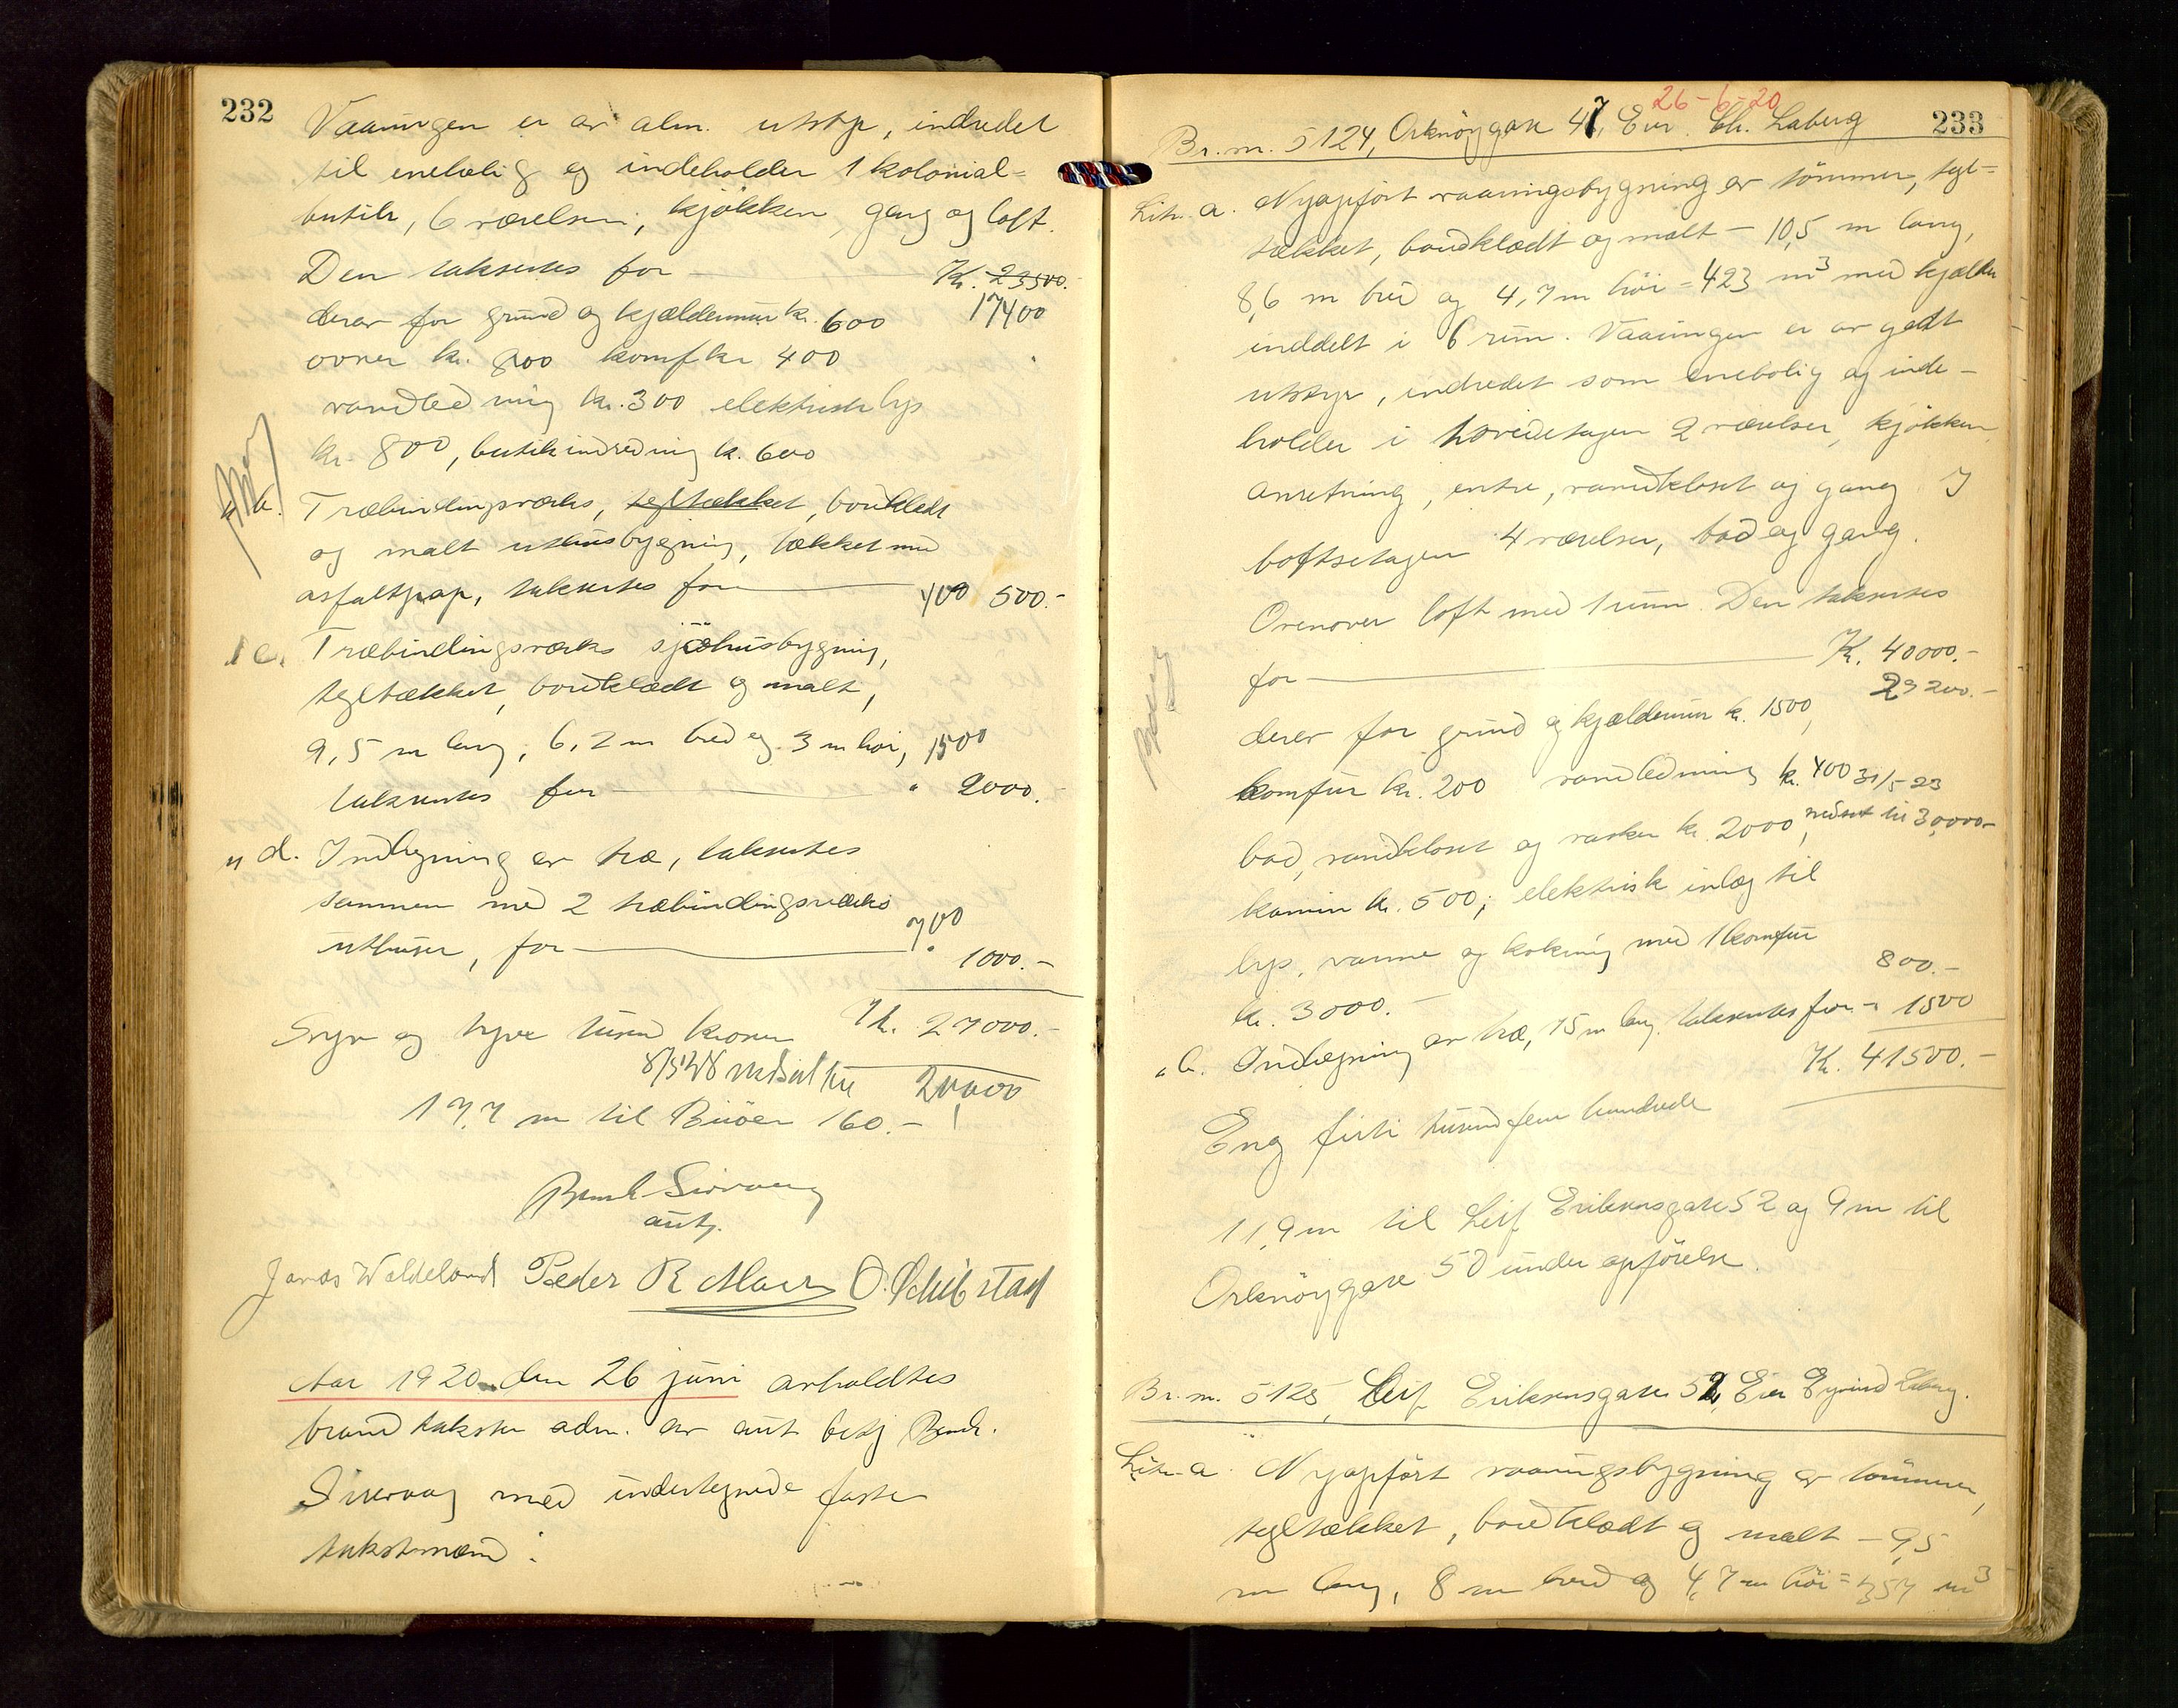 232
Vaaningen er av alm. utstyr, indredet
til enebolig og indeholder 1 kolonial=
butik, 6 værelser, kjökken, gang og loft.
Den takseres for — Kr. 23500.-
17400
derav for grund og kjældermur kr. 600
ovner kr. 800 komf kr 400
vandledning kr. 300 elektrisk lys
kr. 800, butikindredning k. 600
" b. Træbindingsværks, tegltækket, bordklædt
og malt uthusbygning, tækket med
asfaltpap, takseres for — 400 500.-
" c. Træbindingsværks sjøhusbygning,
tegltækket, bordklædt og malt,
9,5 m lang, 6,2 m bred og 3 m höi, 1500
takseres for — " 2000.-
" d. Indhegning av træ, takseres
sammen med 2 træbindingsværks
700
uthuser, for — " 1000.-
Syv og tyve tusend kroner Kr. 27000.-
8/5 28 nedsat til 20,000
17,7 m til Buöen 160.-
Bernh Sirevaag
autg.
Jonas Waldeland Peder R Moer O. Schibstad
Aar 1920 den 26 juni avholdtes
brandtakster adm. av aut besg Bernh.
Sirevaag med undertegnede faste
takstmænd:
26-6-20
233
Br. nr. 5124, Orknöygate 47, Eier Chr. Laberg
Litr. a. Nyopfört vaaningsbygning av tömmer, tegl=
tækket, bordklædt og malt - 10,5 m lang,
8,6 m bred og 4,7 m höi = 423 m³ med kjælder
inddelt i 6 rum. Vaaningen er av godt
utstyr, indredet som enebolig og inde-
holder i hovedetagen 2 værelser, kjökken,
anretning, entre, vandkloset og gang I
loftsetagen 4 værelser, bad og gang.
Ovenover loft med 1 rum. Den takseres
for — Kr. 40000.-
29200.-
derav for grund og kjældermur k. 1500,
komfur kr. 200 vandledning kr. 400 31/5-23
bad, vandkloset og vasker kr. 2000, nedsat til 30,000-
kamin kr. 500; elektrisk inlæg til
lys, varme og kokning med 1 komfur
800.-
kr. 3000.-
" b. Indhegning av træ, 15 m lang takseres for - " 1500
Kr. 41500.-
Eng firti tusend fem hundrede
11,9 m til Leif Eriksensgate 52 og 9 m til
Orknöygate 50 under opförelse.
Br. nr. 5125, Leif Eriksensgate 52, Eier Eyvind Laberg.
Litr. a. Nyopfört vaaningsbygning av tömmer,
tegltækket, bordklædt og malt - 9,5
m lang, 8 m bred og 4,7 m höi = 357 m³